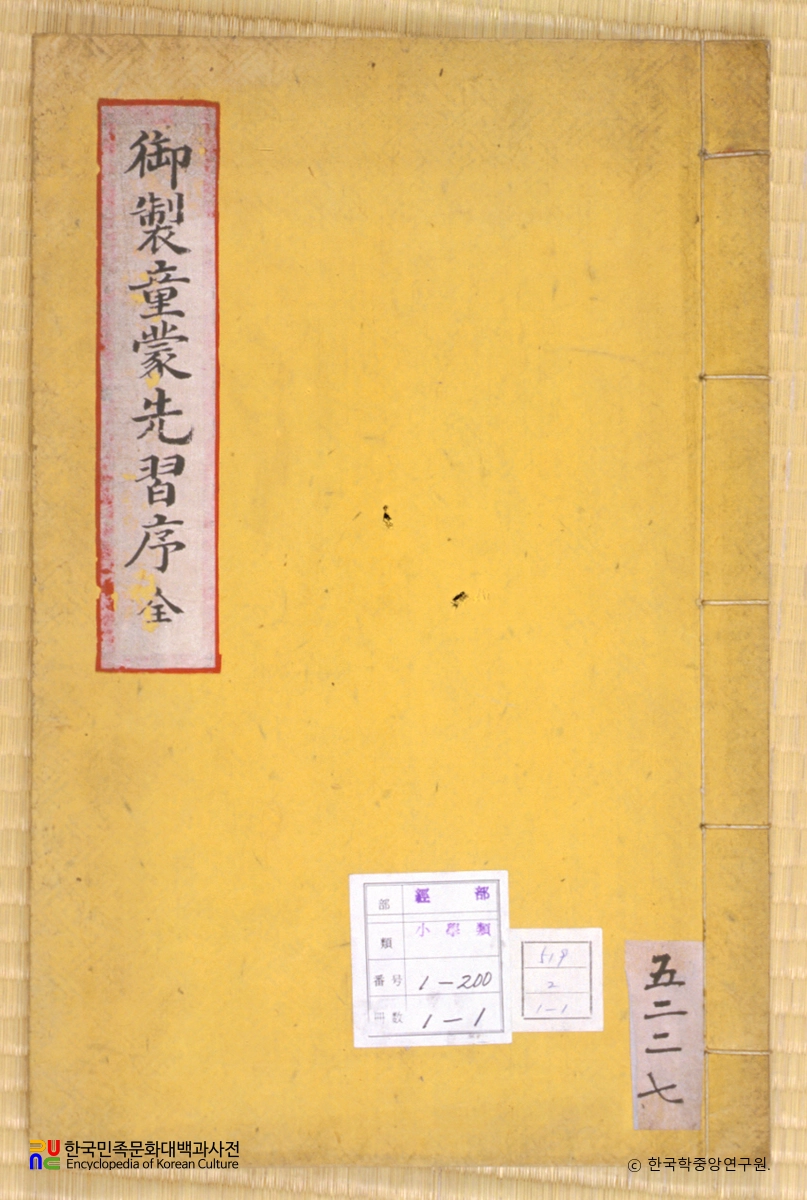 御製童蒙先習序 全
部 經部
類 小學類
番号 1-200
冊数 1-1
2
1-1
五二二七
한국민족문화대백과사전
Encyclopedia of Korean Culture
ⓒ 한국학중앙연구원.